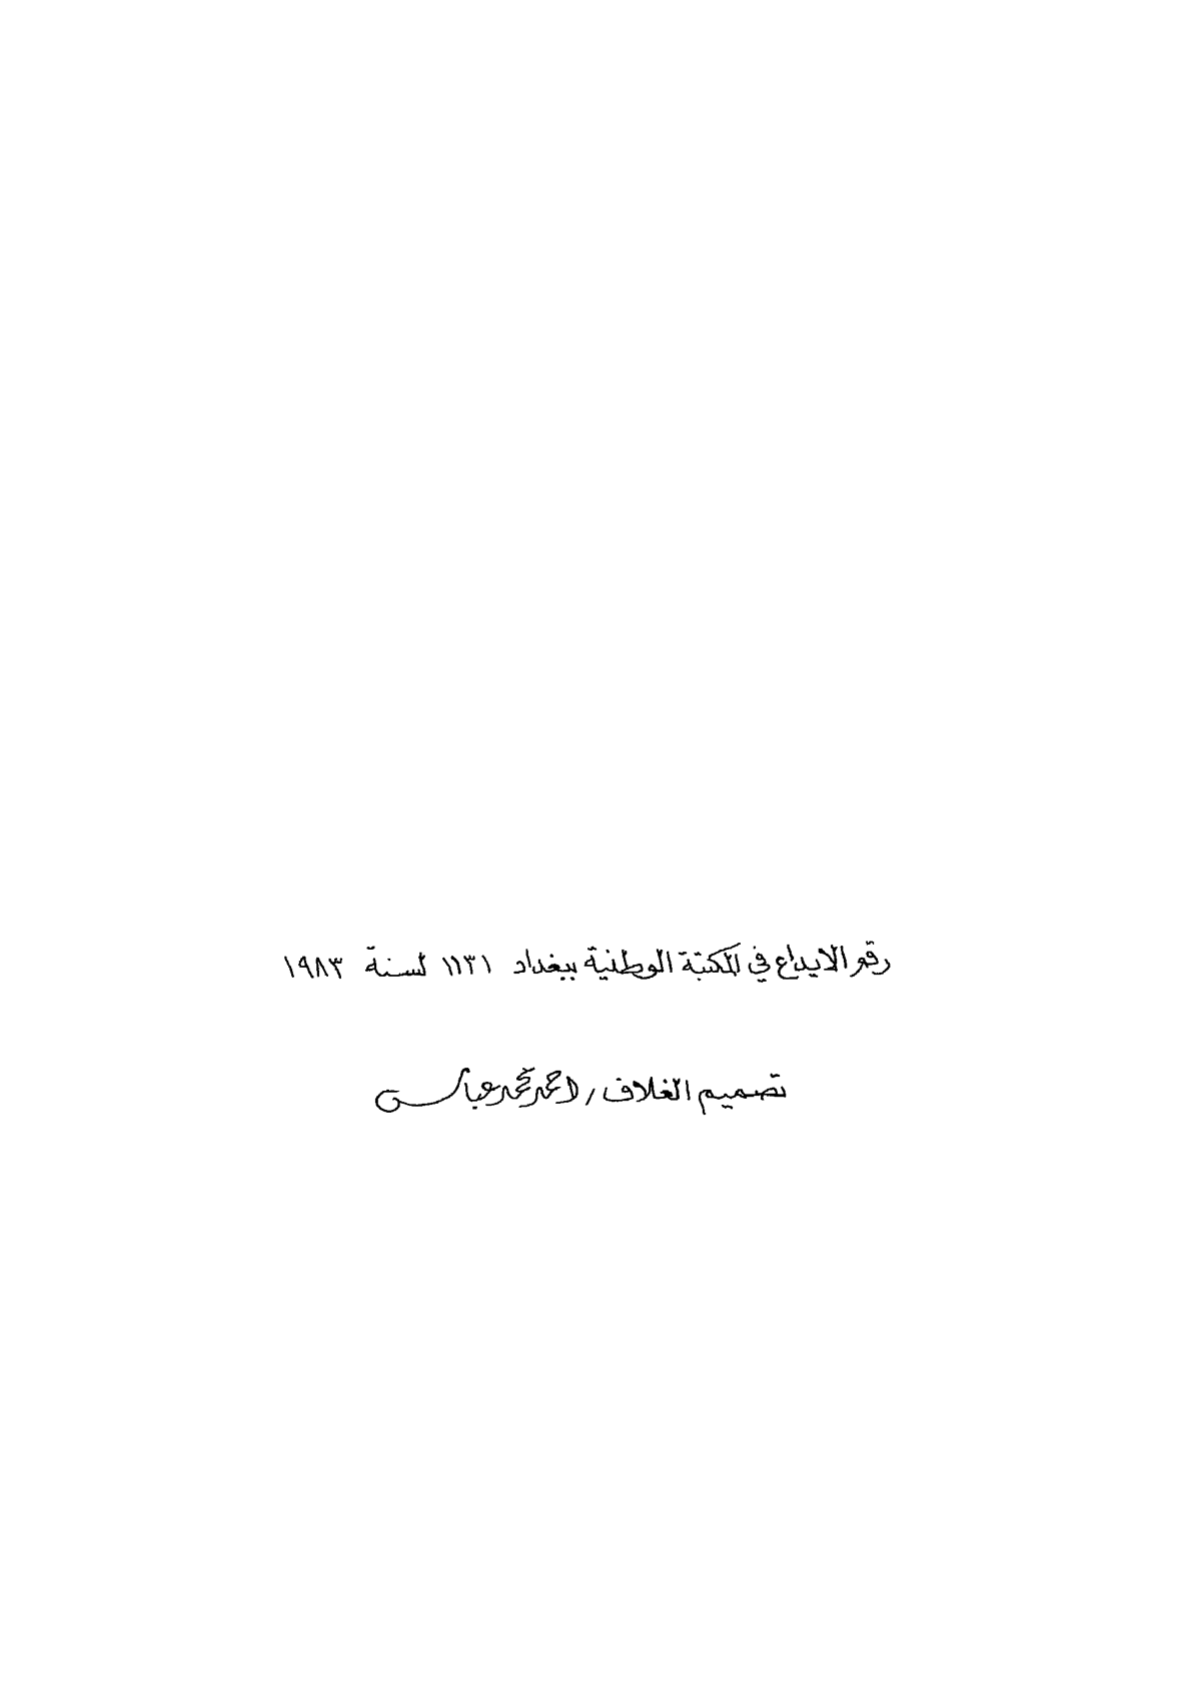 رقم الايداع في المكتبة الوطنية ببغداد ١١٣١ لسنة ١٩٨٣
تصميم الغلاف / احمد محمد عباس